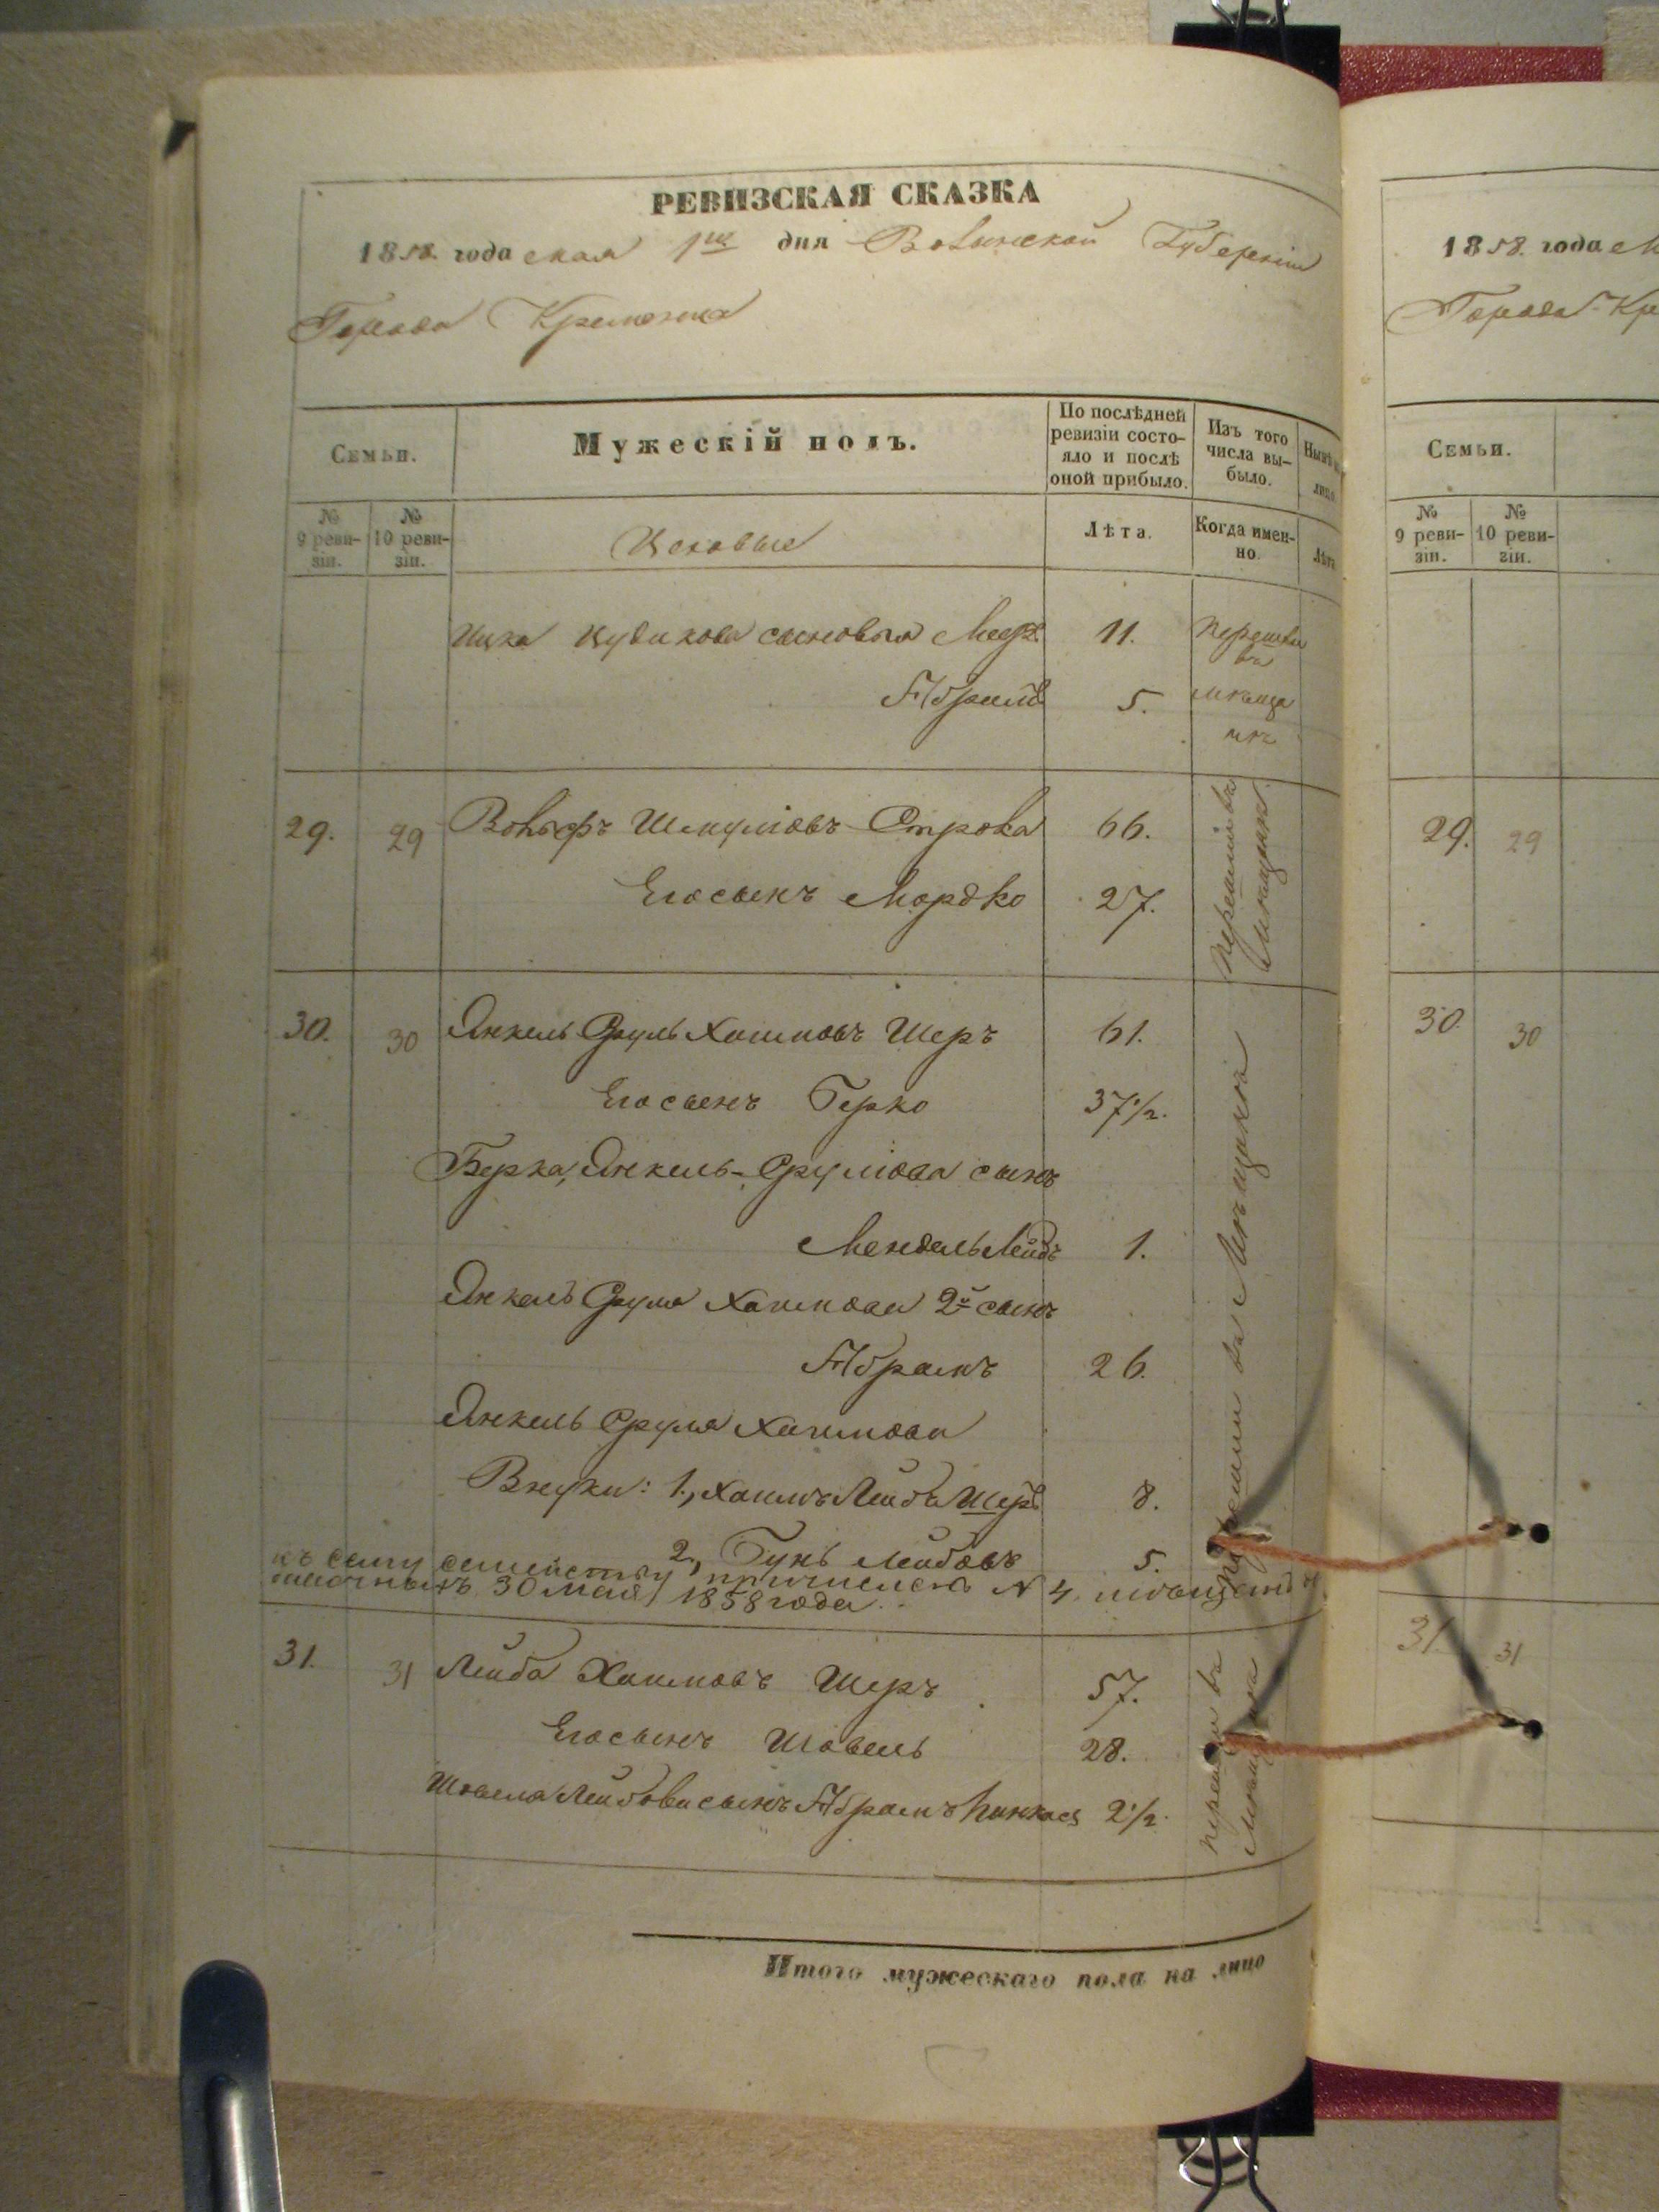 РЕВИЗСКАЯ СКАЗКА
1858. года мая 1го дня Волынской Губерніи
Города Кременца
Семьи.
Мужескій полъ.
По послѣдней ревизіи состо-
яло и послѣ
оной прибыло.
Изъ того
числа вы-
было.
№
9 реви-
зіи.
№
10 реви-
зіи.
Цеховые
Лѣта.
Когда имен-
но.
Лѣта
Ицка Кудикова сыновья Меер 11. перешли
въ
Абрамъ 5. мѣща
не
29. 29 Вольфъ Шмуліовъ Строка 66.
Его сынъ Мордко 27.
перешли въ
мѣщане
30. 30 Янкель Сруль Хаимовъ Шеръ 61.
Его сынъ Герко 37 1/2.
Берка, Янкель-Срулiова сынъ
Мендель Лейбъ 1.
Янкель Сруля Хаимова 2й сынъ
Абрамъ 26.
Янкель Сруля Хаимова
Внуки: 1., Хаимъ Лейбъ Шеръ 8.
2., Гунь Лейбовъ 5.
перешли въ мѣщане
къ сему семейству причисленъ № 4.
30 мая 1858 года.
31. 31 Лейба Хаимовъ Шеръ 57.
Его сынъ Шовель 28.
Шовела Лейбова сынъ Абрамъ Пинкас 2 1/2.
перешли въ
мѣщане
Итого мужескаго пола на лицо
1858. года
Города Кр
Семьи.
№
9 реви-
зіи.
№
10 реви-
зіи.
29. 29
30. 30
31. 31